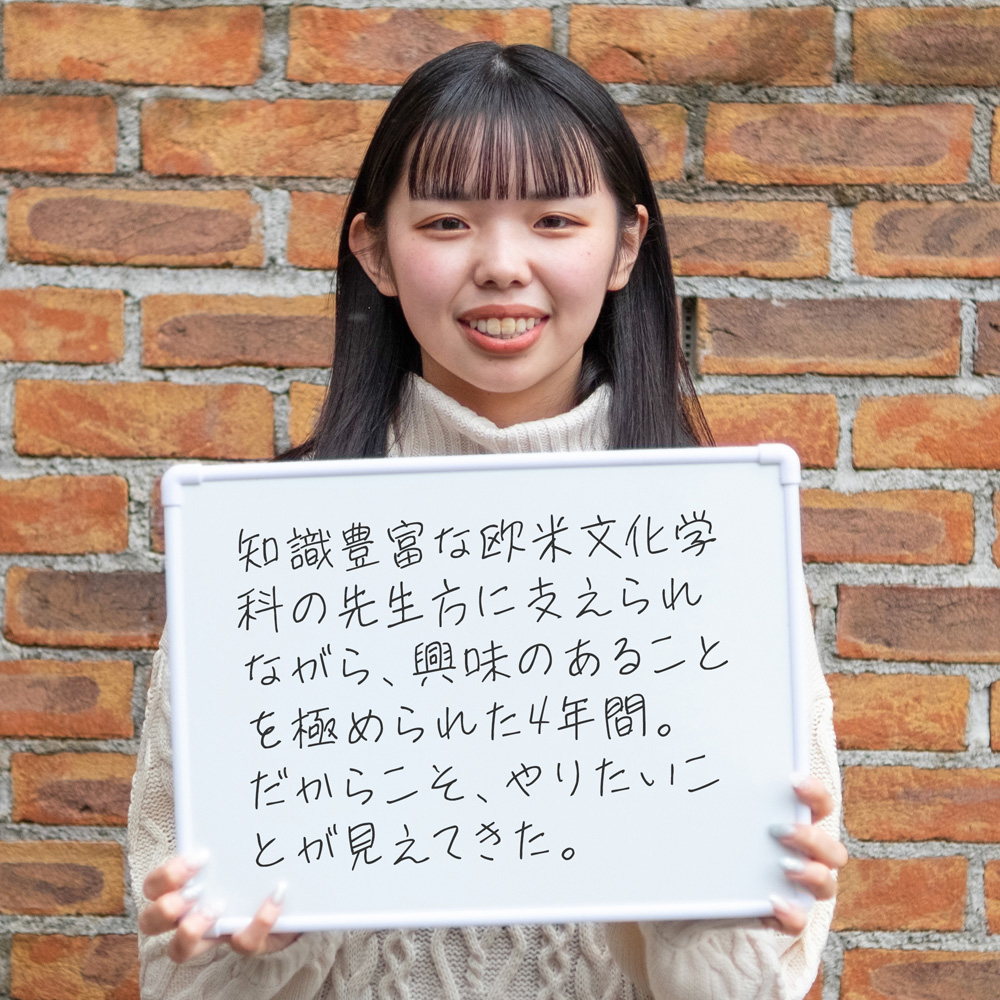 知識豊富な欧米文化学
科の先生方に支えられ
ながら、興味のあること
を極められた4年間。
だからこそ、やりたいこ
とが見えてきた。